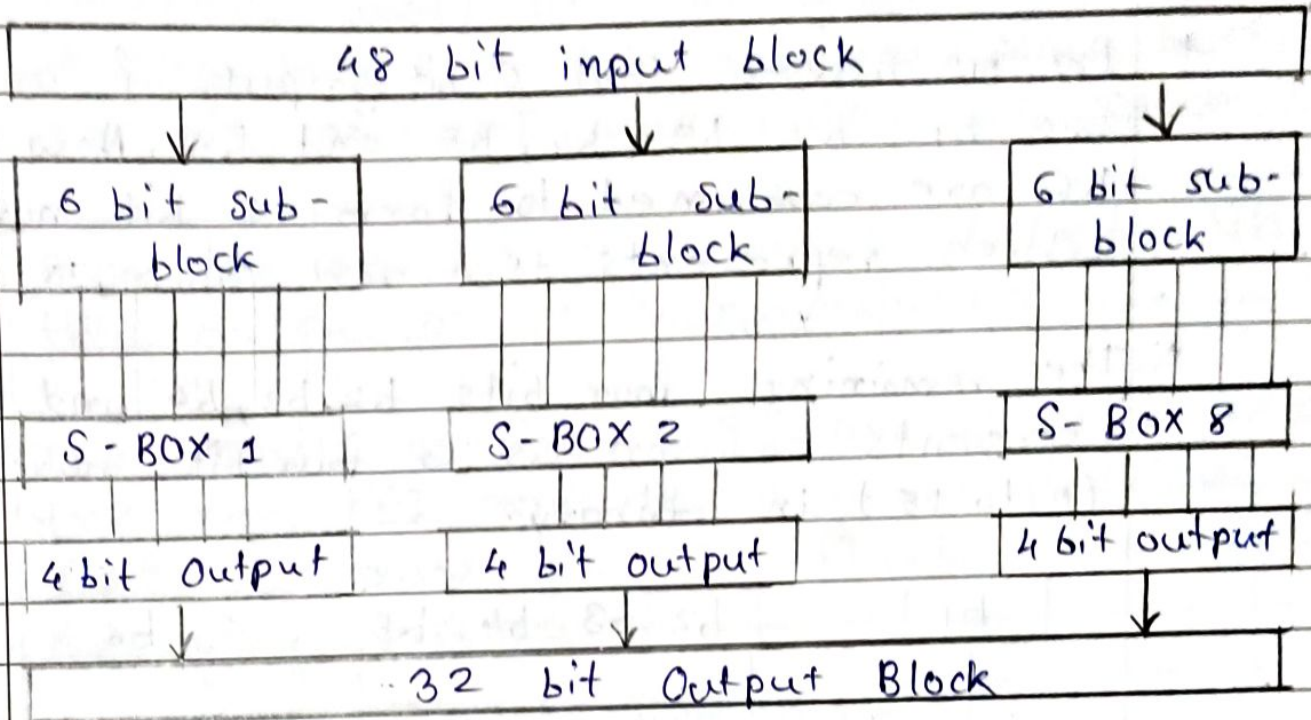 48 bit input block
6 bit sub-
block
6 bit sub-
block
6 bit sub-
block
S-BOX 1
S-BOX 2
S-BOX 8
4 bit Output
4 bit output
4 bit output
32 bit Output Block